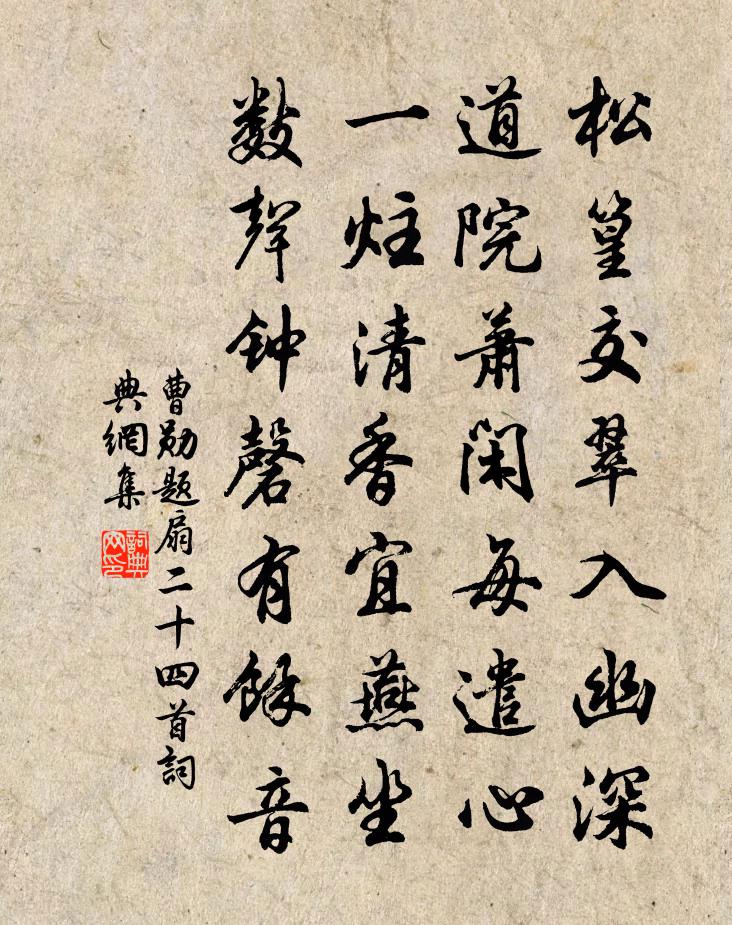 松篁交翠入幽深
道院萧闲每遣心
一炷清香宜燕坐
数声钟磬有餘音
曹勋题扇二十四首詞
典網集
詞典网印